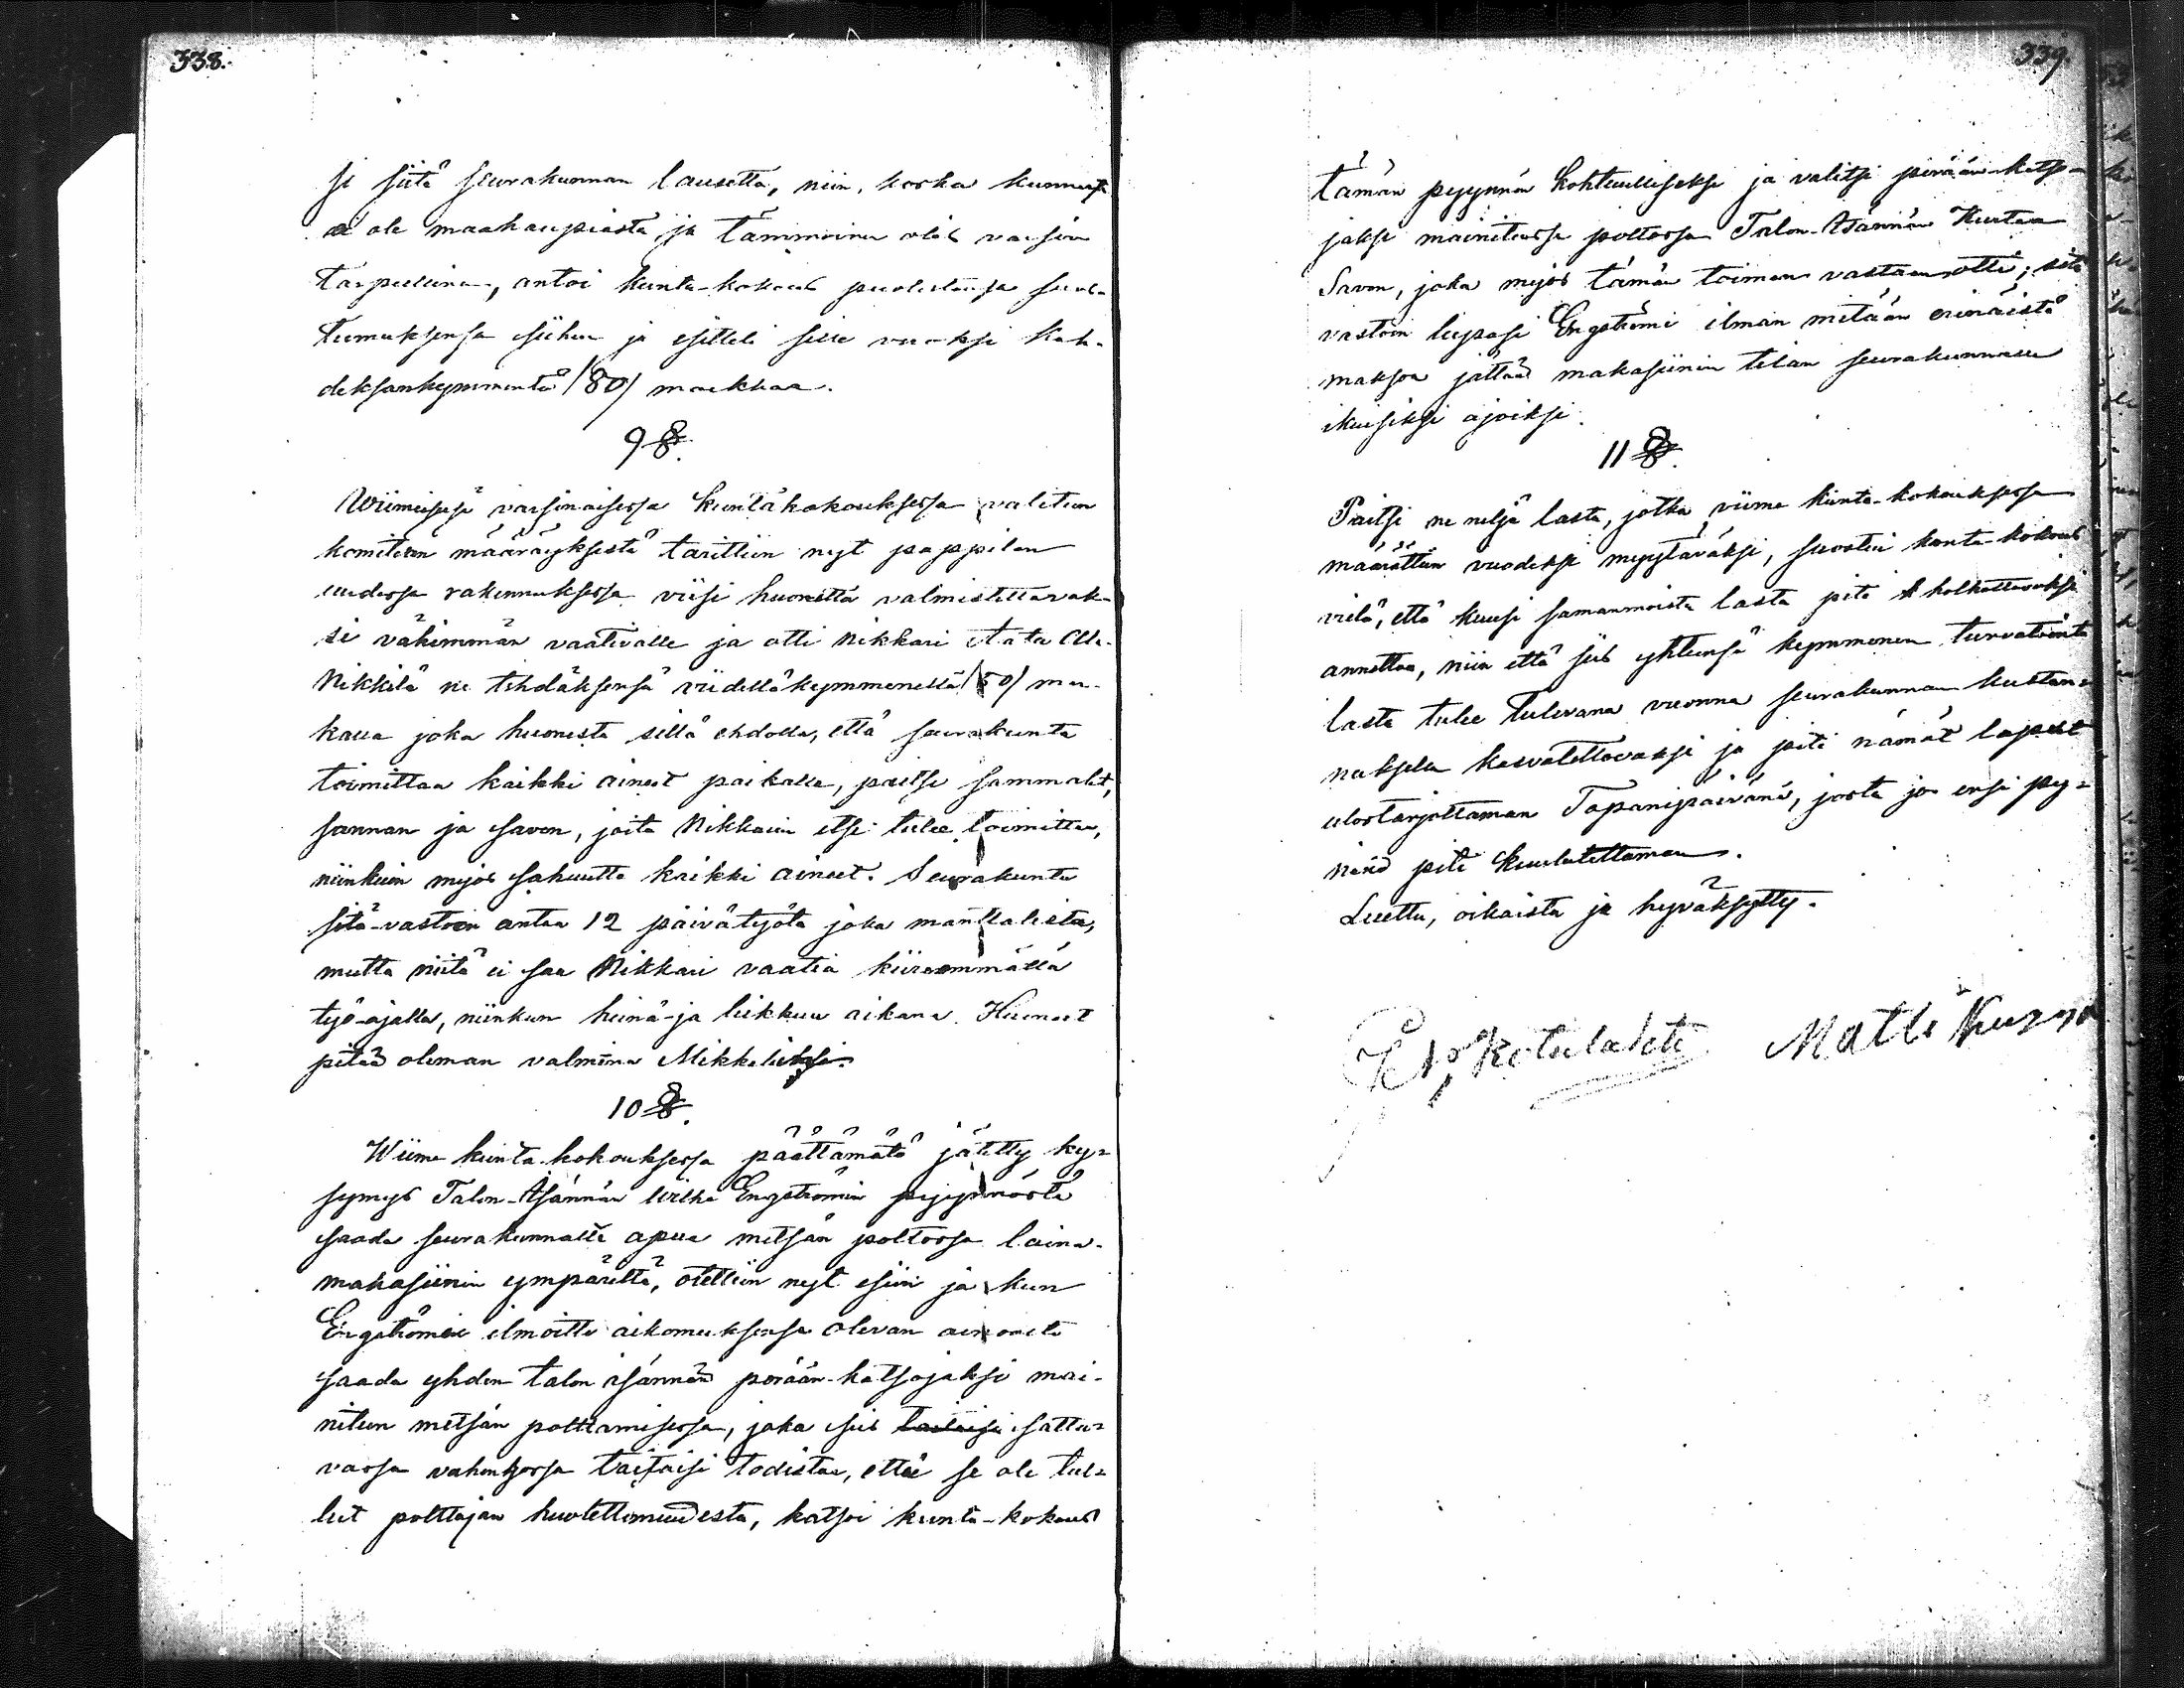 338.
si siitä seurakunnan lausetta, niin, koska kunnassa
ei ole maakaupiasta, ja tämmöinen olis varsin
tarpeellinen, antoi kunta-kokous puolestansa suos-
tumuksensa siihen ja esitteli sille veroksi kah-
deksankymmentä /80/ markkaa.
9 §.
Wiimeisesä varsinaisessa kuntakokouksessa valitun
komitean määräyksestä tarittiin nyt pappilan
uudessa rakennuksessa viisi huonetta valmistettavak-
si vähimmän vaativalle ja otti nikkari Matts Ala-
Nikkilä ne tehdäksensä viidelläkymmenellä /50/ mar-
kalla joka huonesta sillä ehdolla, että seurakunta
toimittaa kaikki aineet paikalle, paitsi sammalet,
sannan ja saven, joita Nikkarin itse tulee toimittaa,
niinkuin myös sahuutta kaikki aineet. Seurakunta
sitä-vastoin antaa 12 päivätyötä joka manttalista,
mutta niitä ei saa Nikkari vaatia kiireemmällä
työ-ajalla, niinkun heinä-ja leikkuu aikana. Huoneet
pitää oleman valmiina Mikkeliksi.
10 §.
Wiime kunta-kokouksessa päättämätä jätetty ky=
symys Talon-Isännän Wilha Engströmin pyynnöstä
saada seurakunnalta apua metsän poltossa laina-
makasiinin ympäriltä, otettiin nyt esiin ja kun
Engströmi ilmoitti aikomuksensa olevan ainoasta
saada yhden talon isännän perään-katsojaksi mai-
nitun metsän polttamisessa, joka siis taitaisi sattu=
vassa vahingossa taitaisi todistaa, ettei se ole tul=
lut polttajan huolettomuudesta, katsoi kunta-kokous
339.
tämän pyynnön kohtuulliseksi ja valitsi perään-katso-
jaksi mainitussa poltossa Talon-Isännän Kustaa
Savon, joka myös tämän toimen vastaan otti; sitä
vastoin lupasi Engströmi ilman mitään erinäistä
maksoa jättää makasiinin tilan seurakunnalle
ikuisiksi ajoiksi.
11 §.
Paitsi ne neljä lasta, jotka viime kunta-kokouksessa
määrättiin vuodeksi myytäväksi, suostui kunta-kokous
vielä, että kuusi samanmoista lasta piti holhottavaksi
annettaa, niin että siis yhteensä kymmenen turvatointa
lasta tulee tulevana vuonna seurakunnan kustan=
nuksella kasvatettavaksi ja piti nämät lapset
ulostarjottaman Tapanipäivänä, josta jo ensi py=
hänä piti kuulutettaman.
Luettu, oikaistu ja hyväksytty.
Matti